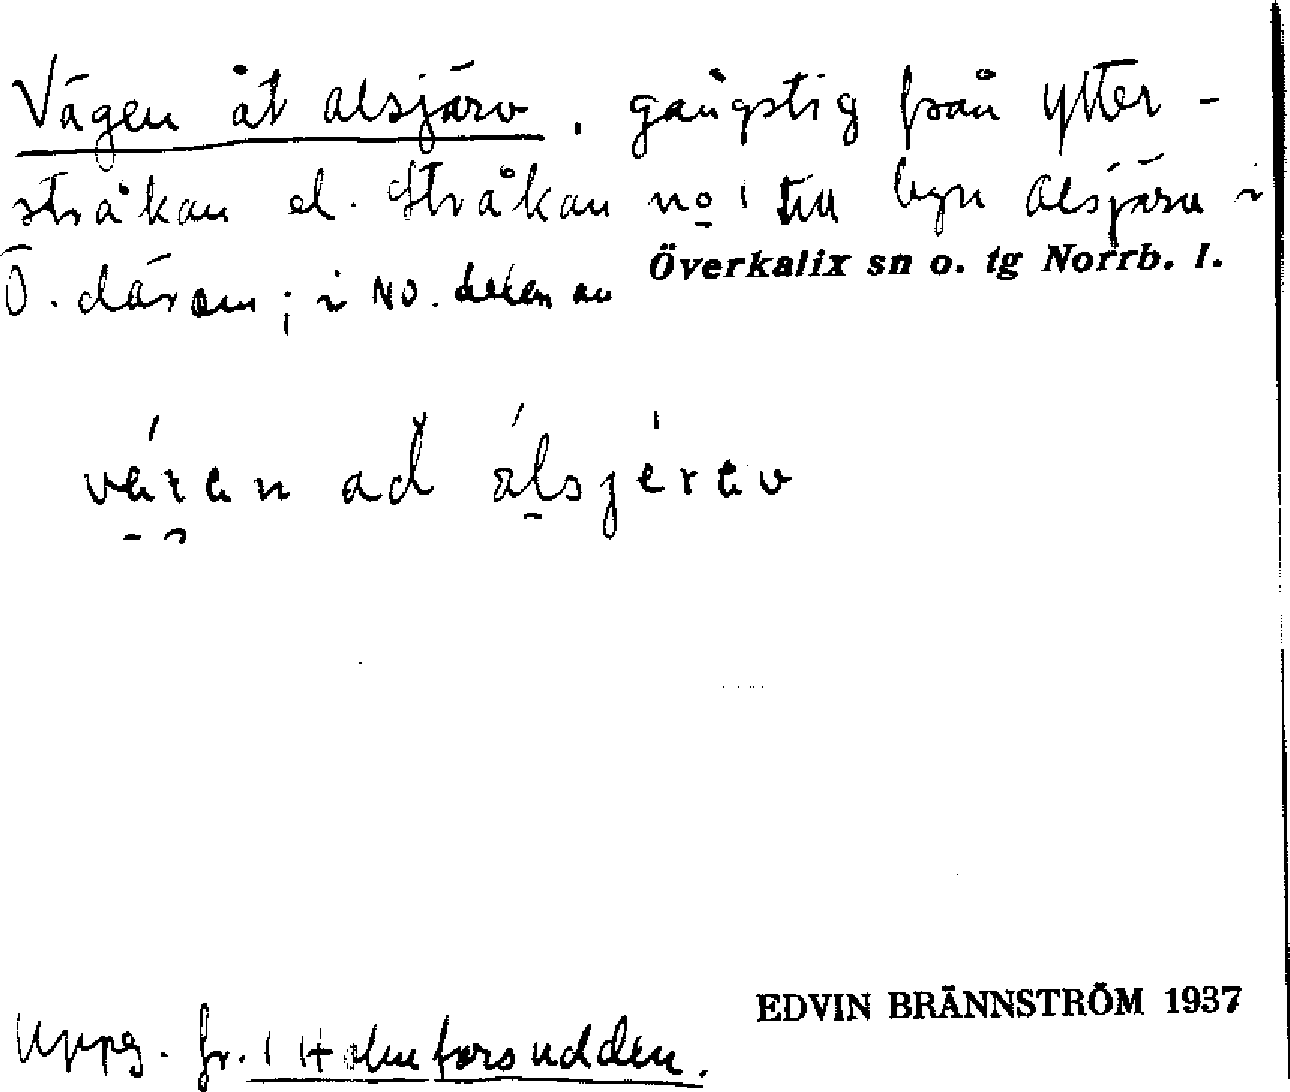 Vägen åt Alsjärv, gångstig från Ytter-
stråkan el. Stråkan no 1 till byn Alsjärv i
Ö. därom; i NO. delen av Överkalix sn o. tg Norrb. l.
Uppg. fr. Holmforsudden.
EDVIN BRÄNNSTRÖM 1937